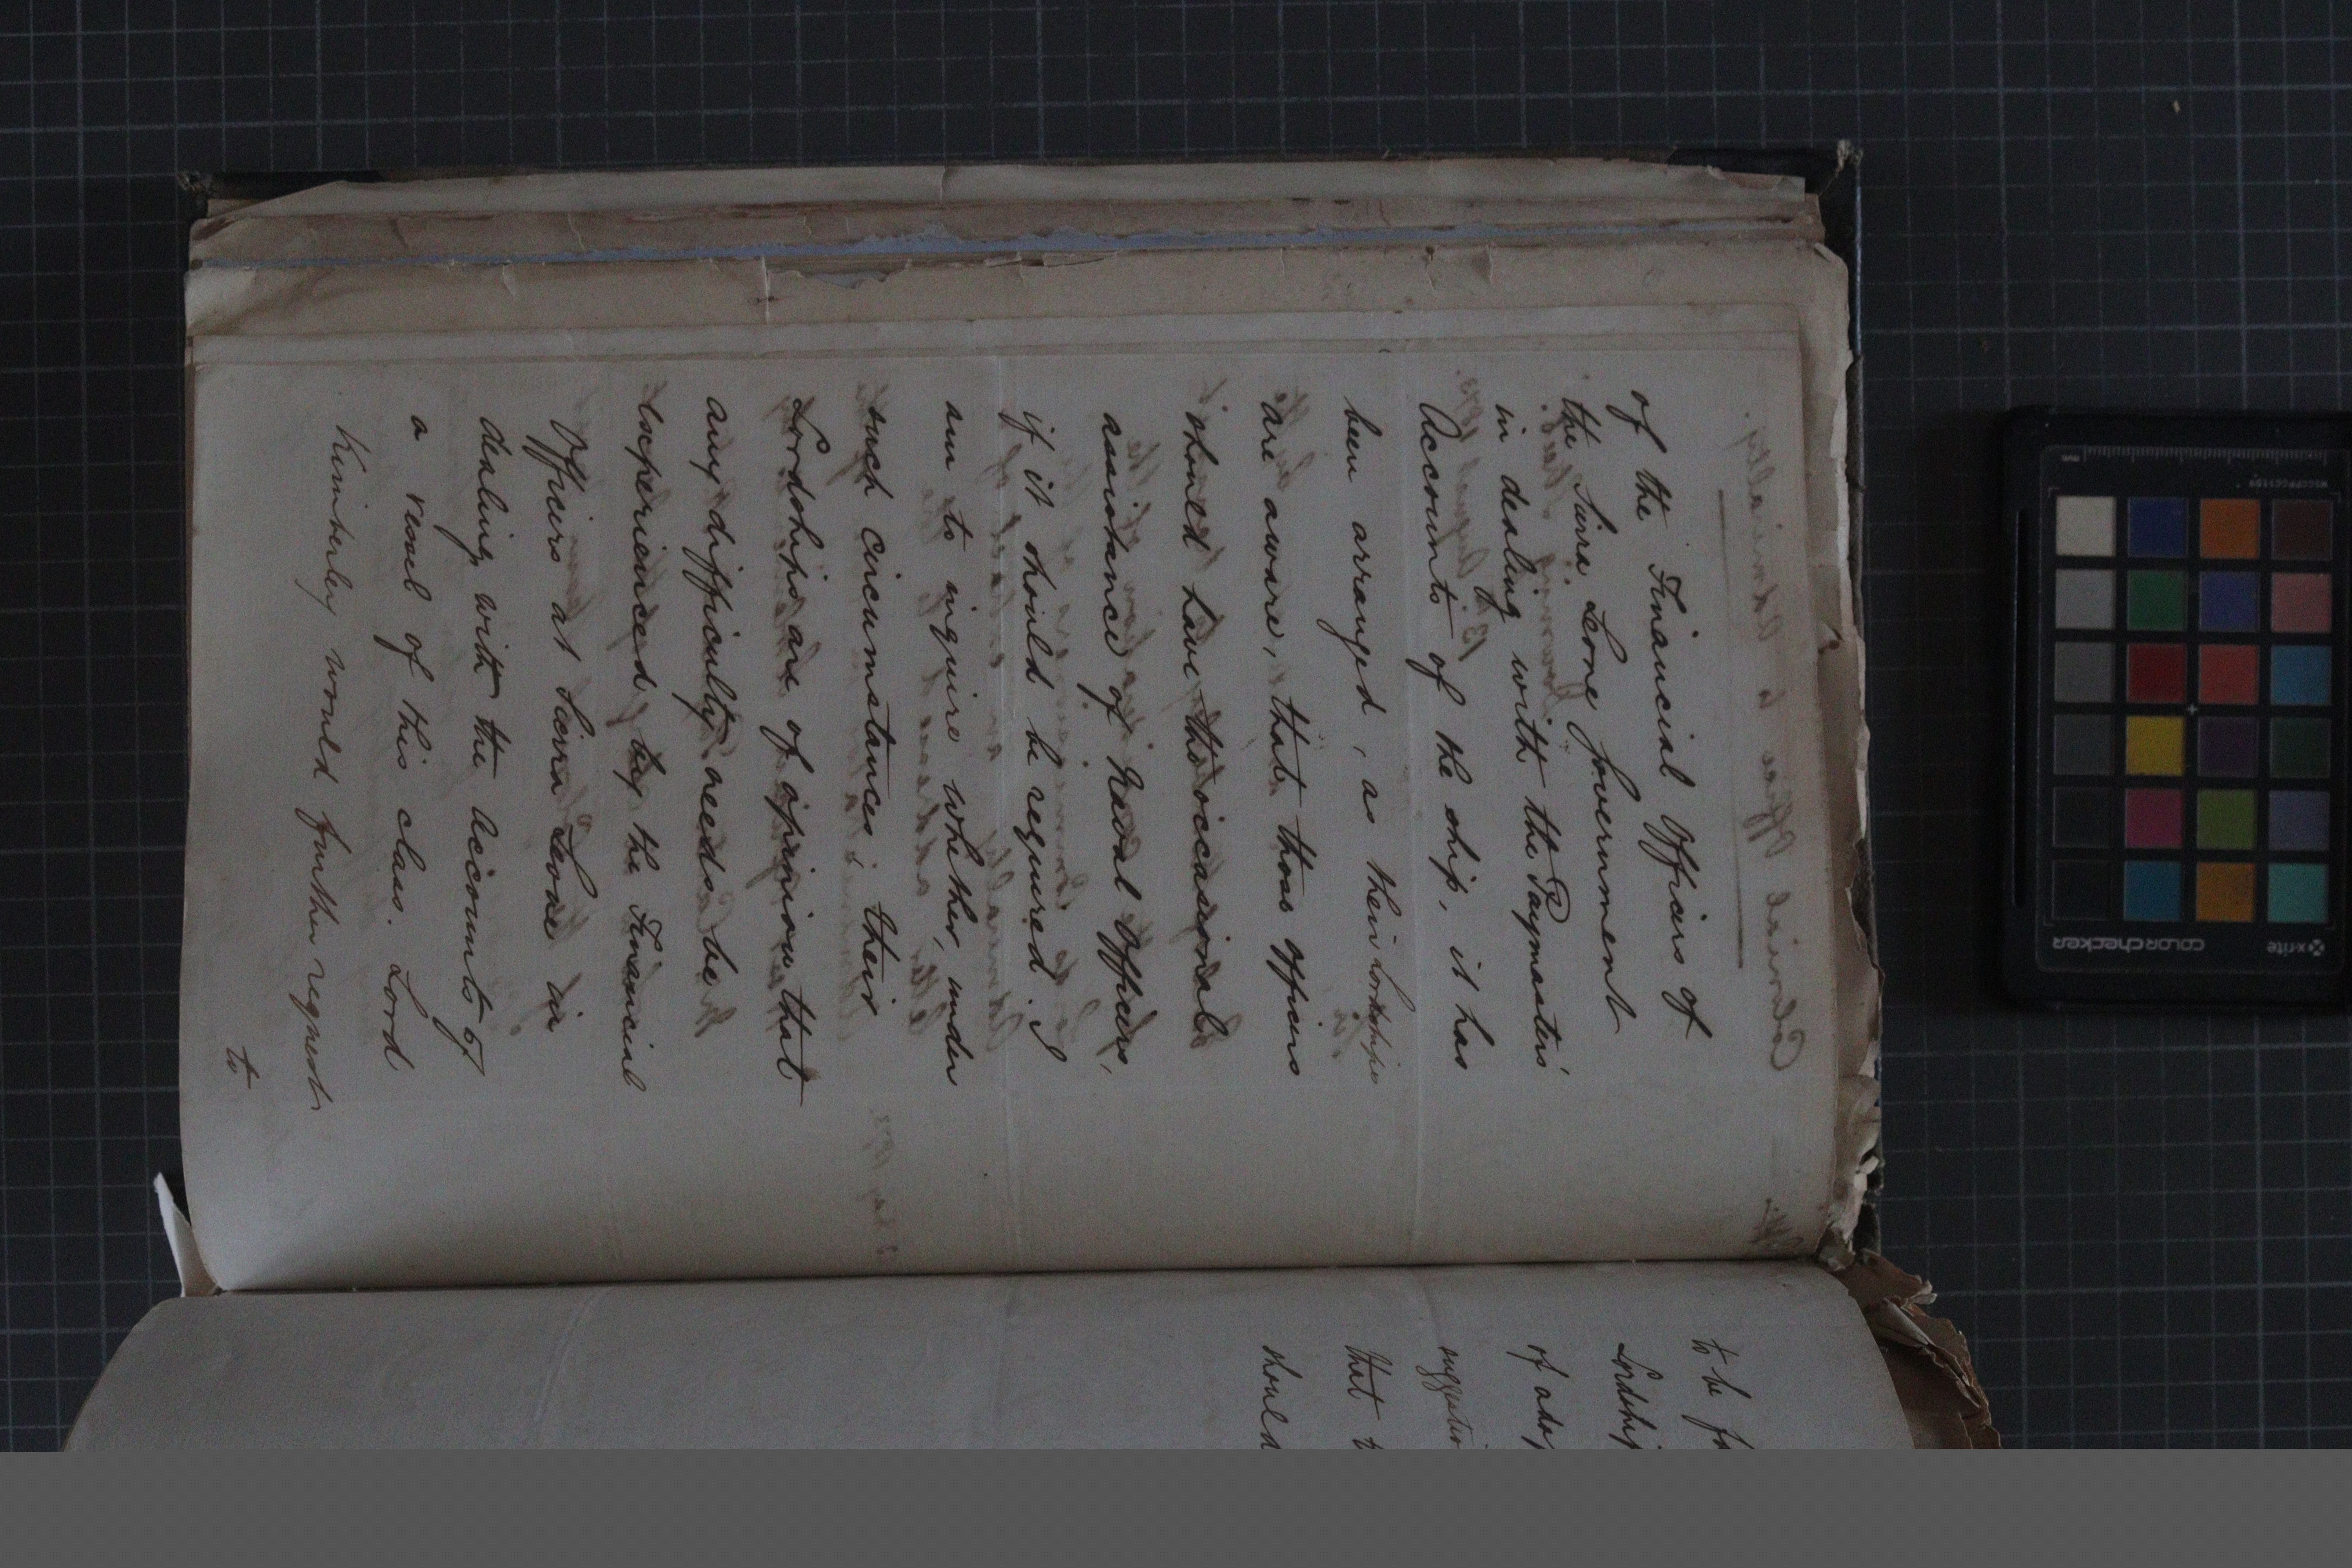 of the Financial Officers of
the Siera Leone Government
in dealing with the Paymasters'
Accounts of the ship, it has
been arranged, as their Lordships
are aware, that those officers
should have the occasional
assistance of Naval Officers,
if it should be required; I
am to inquire whether, under
such circumstances, their
Lordships are of opinion that
any difficulty needs be
experienced by the Financial
Officers at Sierra Leone in
dealing with the accounts of
a vessel of this class. Lord
Kimberley would further request
to
to be fo
Lordship
of adop
suggestio
that t
should
x-rite
colorchecker